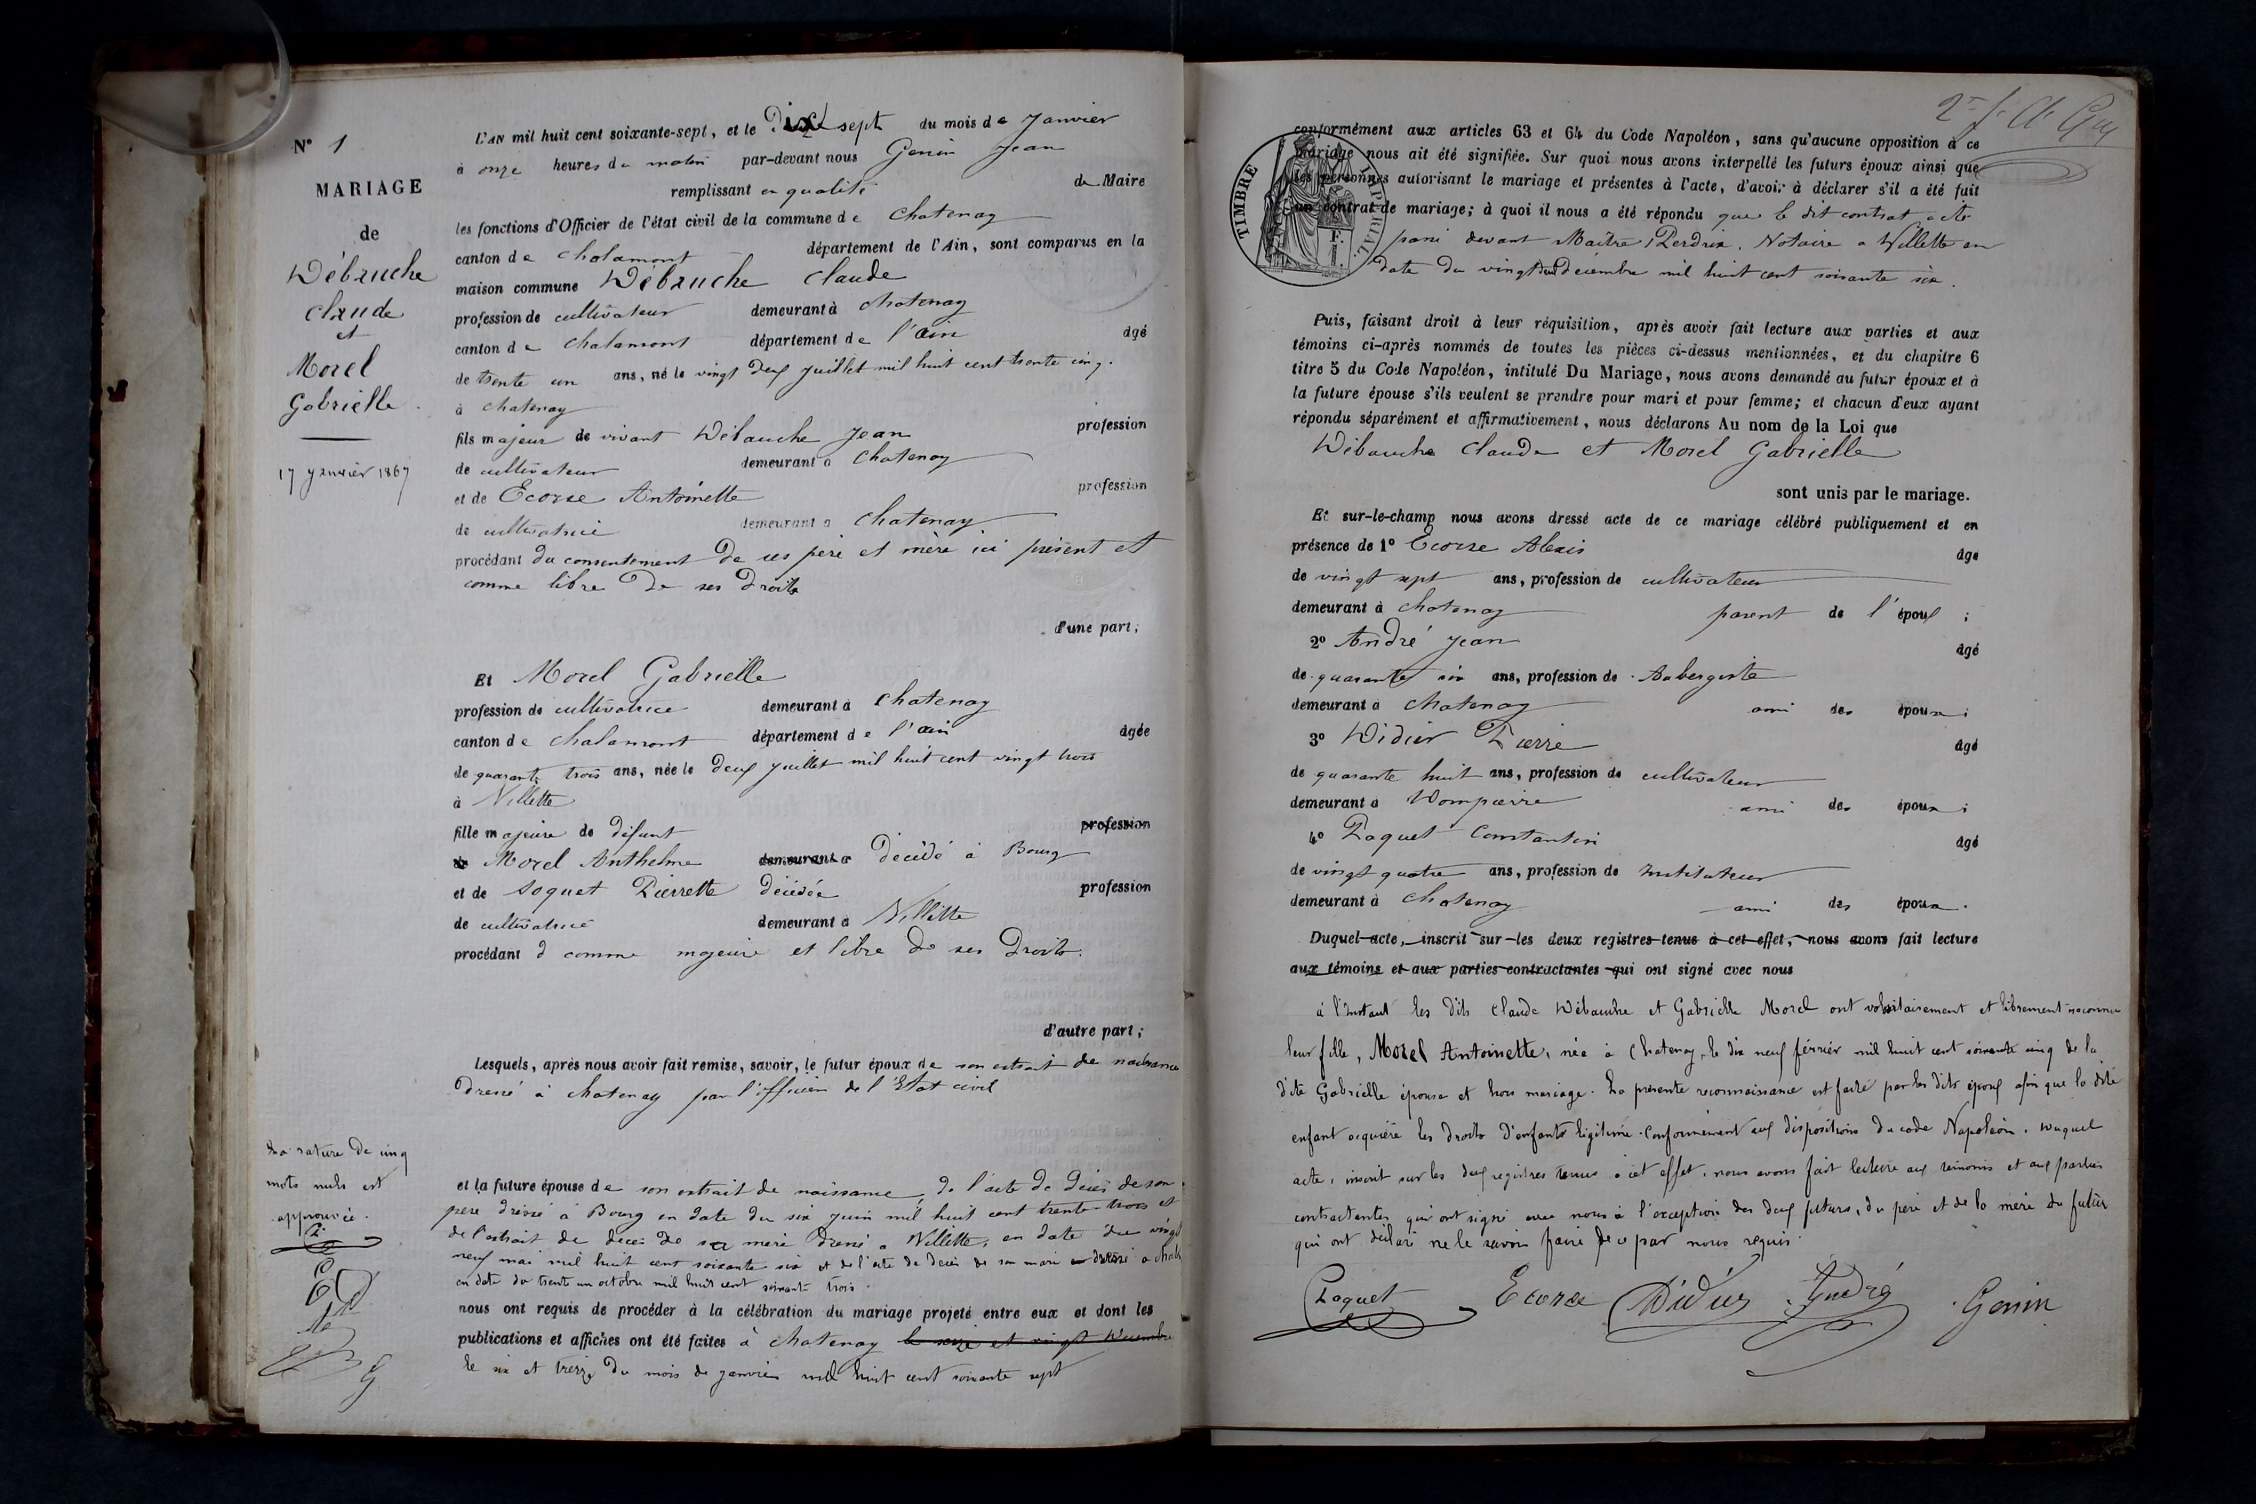 N° 1
MARIAGE
de
Débauche
Claude
et
Morel
Gabrielle
17 Janvier 1867
L'AN mil huit cent soixante-sept, et le Dix sept du mois de Janvier
à onze heures du matin par-devant nous Genin Jean
remplissant en qualité de Maire
les fonctions d'Officier de l'état civil de la commune de Chatenay
canton de Chalamont département de l'Ain, sont comparus en la
maison commune Débauche Claude
profession de cultivateur demeurant à Chatenay
canton de Chalamont département de l'ain âgé
de trente un ans, né le vingt deux juillet mil huit cent trente cinq.
à Chatenay
fils majeur de vivant Débauche Jean profession
de cultivateur demeurant à Chatenay
et de Ecorse Antoinette profession
de cultivatrice demeurant à Chatenay
procédant du consentement de ses père et mère ici présent et
comme libre de ses droits
d'une part;
Et Morel Gabrielle
profession de cultivatrice demeurant à Chatenay
canton de Chalamont département de l'ain âgée
de quarante trois ans, née le deux juillet mil huit cent vingt trois
à Villette
fille majeure de défunt profession
de Morel Anthelme demeurant à décédé à Bourg
et de Soquet Pierrette décédée profession
de cultivatrice demeurant à Villette
procédant d comme majeure et libre de ses droits.
d'autre part;
Lesquels, après nous avoir fait remise, savoir, le futur époux de son extrait de naissance
dressé à Chatenay par l'officier de l'Etat civil
La rature de cinq
mots nuls est
approuvée.
et la future épouse de son extrait de naissance, de l'acte de décès de son
père dressé à Bourg en date du six juin mil huit cent trente trois et
de l'extrait de décès de sa mère dressé à Villette, en date du vingt
neuf mai mil huit cent soixante six et de l'acte de décès de son mari dressé à
en date du trente un octobre mil huit cent soixante trois.
nous ont requis de procéder à la célébration du mariage projeté entre eux et dont les
publications et affiches ont été faites à Chatenay le seize et vingt Décembre
le six et treize du mois de janvier mil huit cent soixante sept
TIMBRE IMPÉRIAL
conformément aux articles 63 et 64 du Code Napoléon, sans qu'aucune opposition à ce
mariage nous ait été signifiée. Sur quoi nous avons interpellé les futurs époux ainsi que
les personnes autorisant le mariage et présentes à l'acte, d'avoir à déclarer s'il a été fait
un contrat de mariage; à quoi il nous a été répondu que le dit contrat a été
passé devant Maître Perdrix, Notaire à Villette en
date du vingt deux décembre mil huit cent soixante six.
Puis, faisant droit à leur réquisition, après avoir fait lecture aux parties et aux
témoins ci-après nommés de toutes les pièces ci-dessus mentionnées, et du chapitre 6
titre 5 du Code Napoléon, intitulé Du Mariage, nous avons demandé au futur époux et à
la future épouse s'ils veulent se prendre pour mari et pour femme; et chacun d'eux ayant
répondu séparément et affirmativement, nous déclarons Au nom de la Loi que
Débauche Claude et Morel Gabrielle
sont unis par le mariage.
Et sur-le-champ nous avons dressé acte de ce mariage célébré publiquement et en
présence de 1° Ecorse Alexis âgé
de vingt sept ans, profession de cultivateur
demeurant à Chatenay parent de l'époux ;
2° André Jean âgé
de quarante six ans, profession de Aubergiste
demeurant à Chatenay ami des époux ;
3° Didier Pierre âgé
de quarante huit ans, profession de cultivateur
demeurant à Dompierre ami des époux ;
4° Paquet Constantin âgé
de vingt quatre ans, profession de Instituteur
demeurant à Chatenay ami des époux.
Duquel acte, inscrit sur les deux registres tenus à cet effet, nous avons fait lecture
aux témoins et aux parties contractantes qui ont signé avec nous
à l'instant les dits Claude Débauche et Gabrielle Morel ont volontairement et librement reconnu
leur fille, Morel Antoinette, née à Chatenay, le dix neuf février mil huit cent soixante cinq de la
dite Gabrielle épouse et hors mariage. La présente reconnaissance est faite par les dits époux afin que la dite
enfant acquière les droits d'enfants légitime conformément aux dispositions du code Napoléon. Duquel
acte, inscrit sur les deux registres tenus à cet effet, nous avons fait lecture aux témoins et aux parties
contractantes qui ont signé avec nous à l'exception des deux futurs, du père et de la mère du futur
qui ont déclaré ne le savoir faire de ce par nous requis.
Paquet Ecorse Didier André Genin